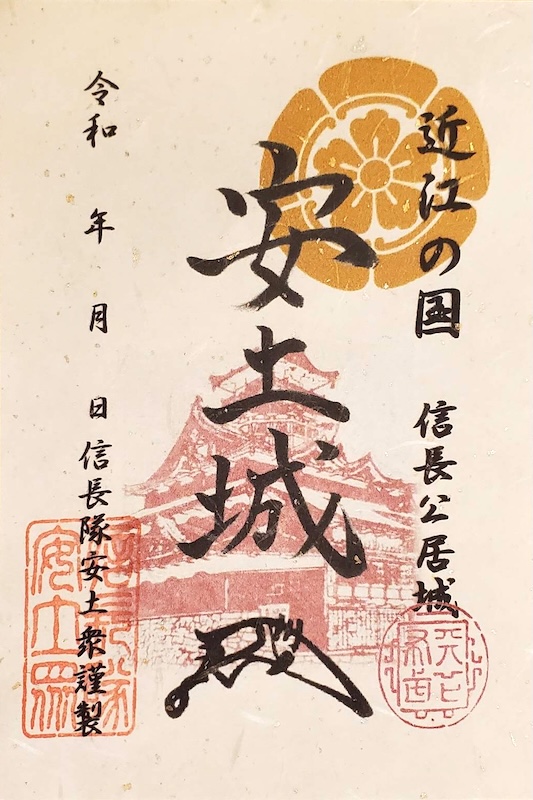 近江の国　信長公居城
安土城
令和　年　月　日　信長隊安土衆謹製
信長隊
安土衆
天下布武